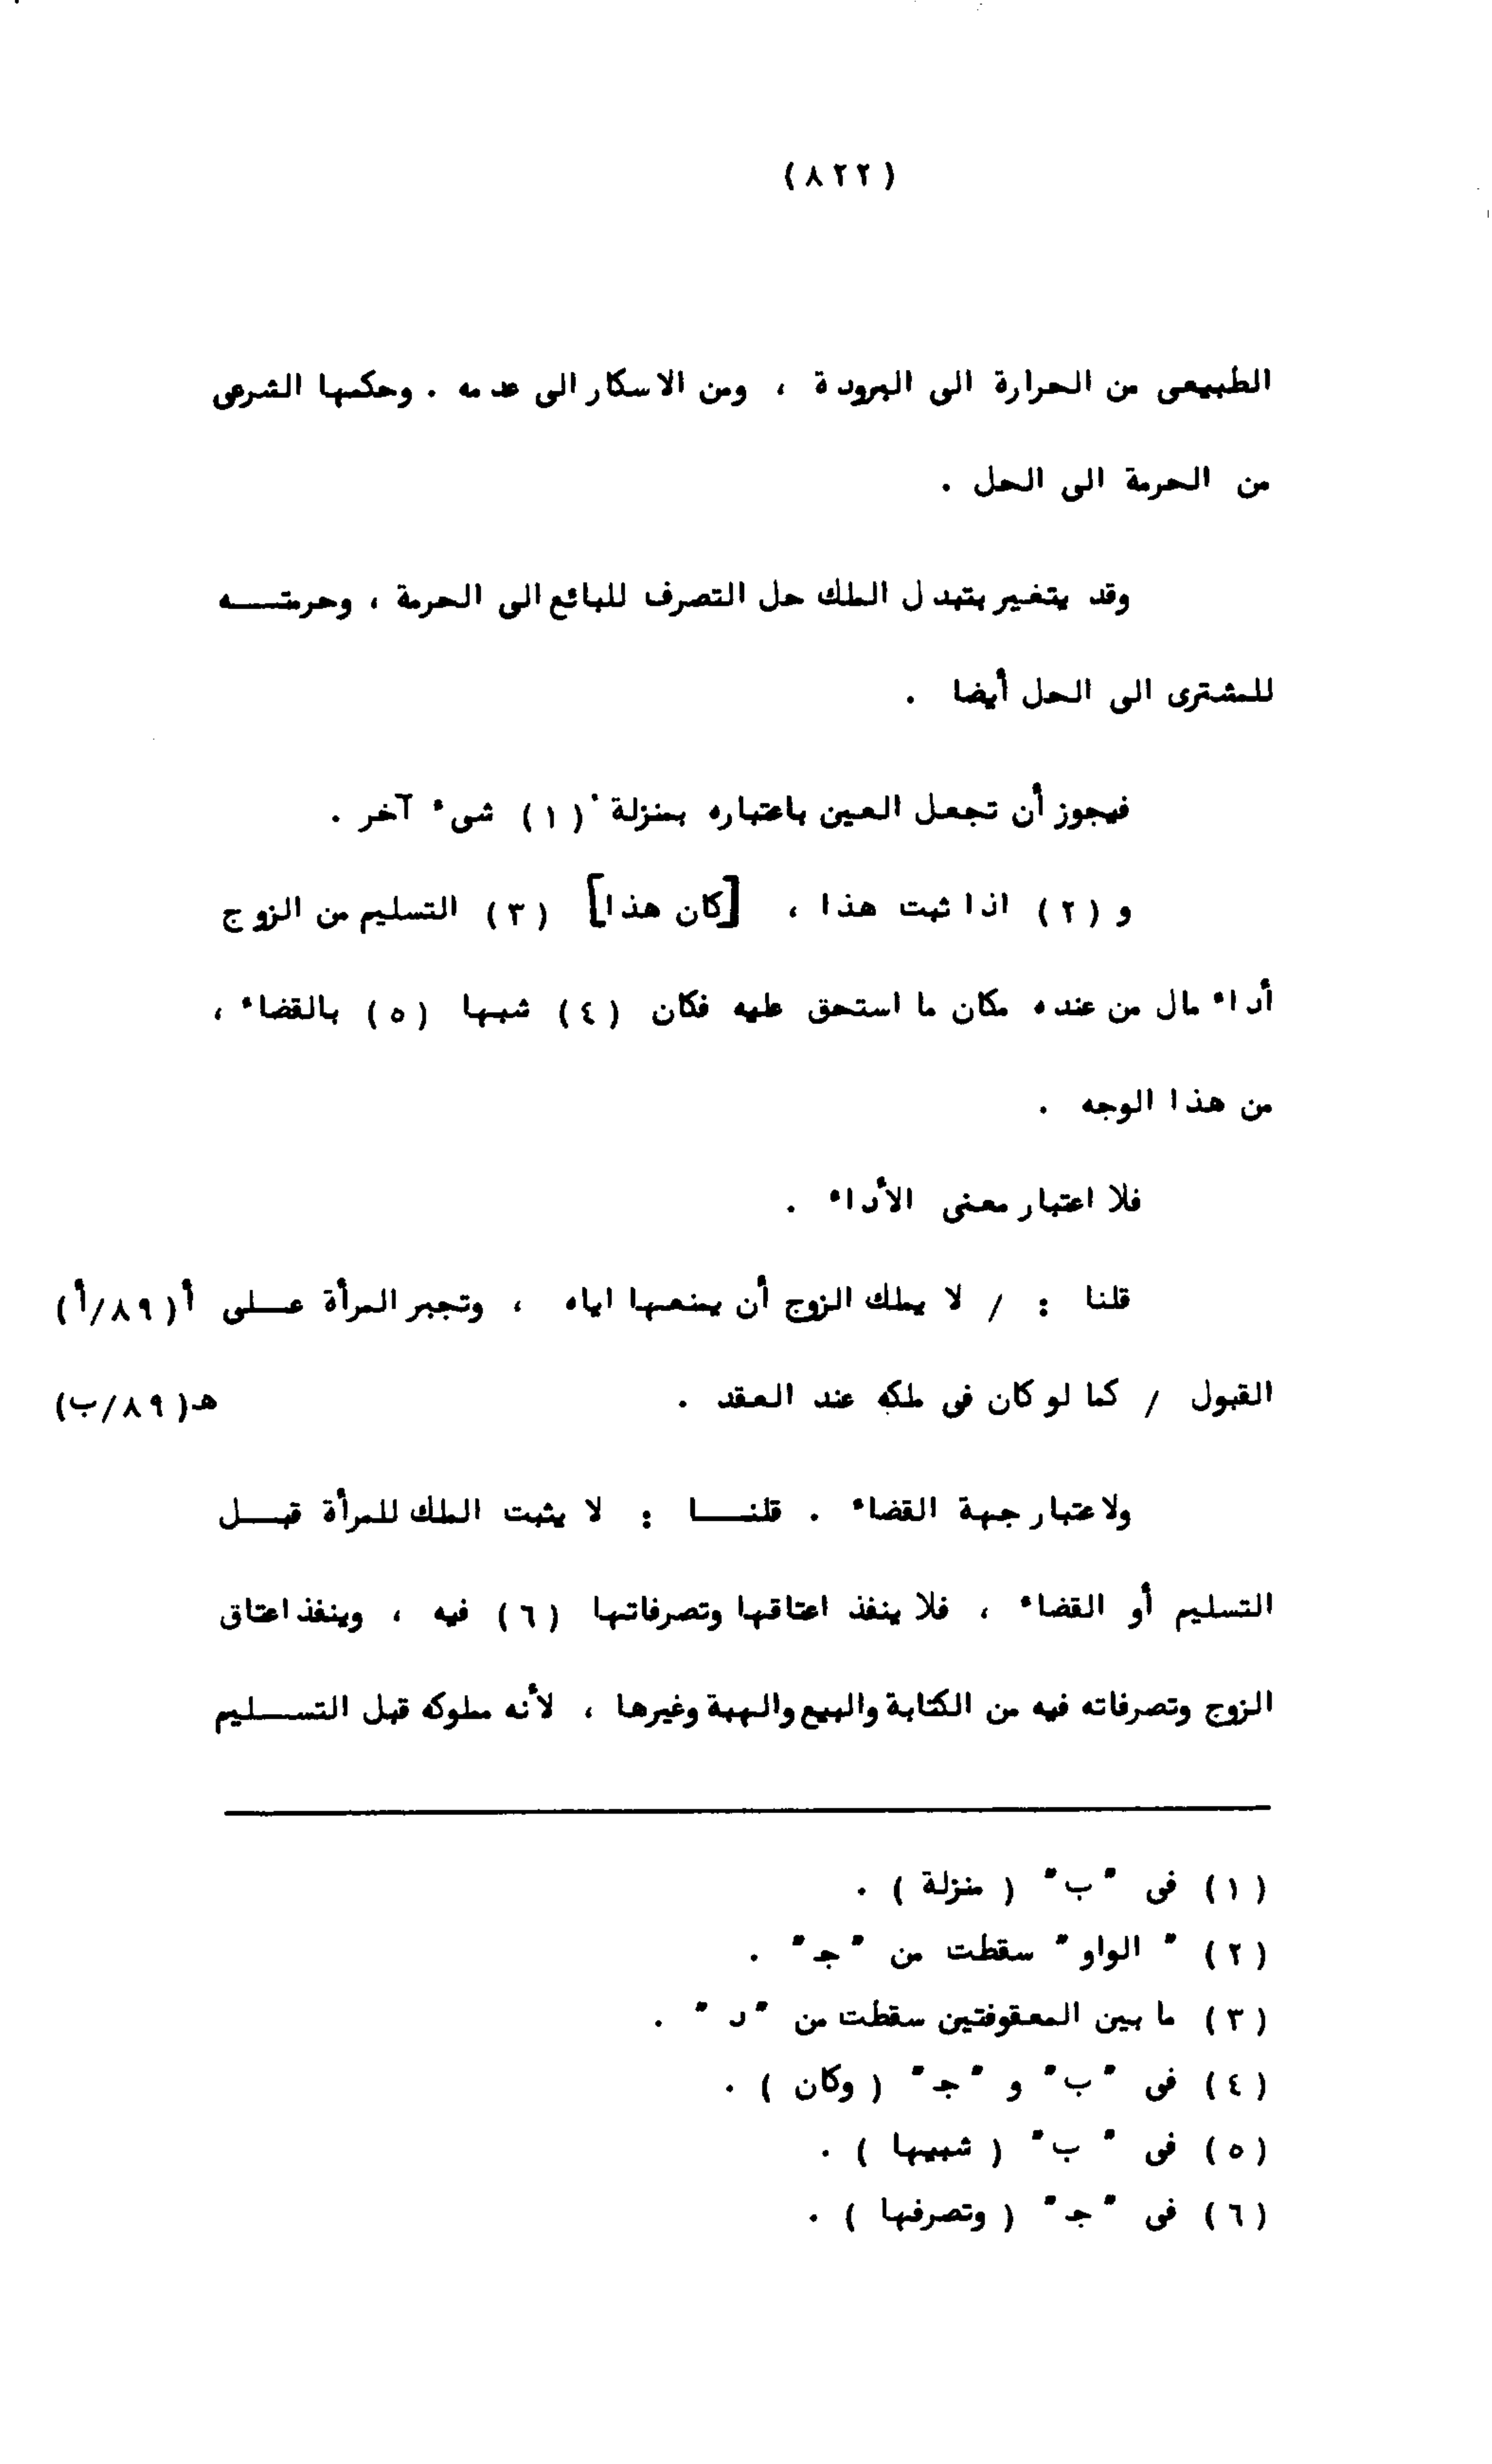 (٨٢٢)
الطبيعى من الحرارة الى البرودة ، ومن الاسكار الى عدمه . وحكمها الشرعى
من الحرمة الى الحل .
وقد يتغير بتبدل الملك حل التصرف للبائع الى الحرمة ، وحرمتـــه
للمشترى الى الحل أيضا .
فيجوز أن تجعل العين باعتباره بمنزلة (١) شىء آخر .
و (٢) اذا ثبت هذا ، [كان هذا] (٣) التسليم من الزوج
أداء مال من عنده مكان ما استحق عليه فكان (٤) شبها (٥) بالقضاء ،
من هذا الوجه .
فلا اعتبار معنى الأداء .
قلنا : / لا يملك الزوج أن يمنعها اياه ، وتجبر المرأة عــلى أ(٨٩/أ)
القبول / كما لو كان فى ملكه عند العقد . هـ(٨٩/ب)
ولاعتبار جهة القضاء . قلنــا : لا يثبت الملك للمرأة قبــل
التسليم أو القضاء ، فلا ينفذ اعتاقها وتصرفاتها (٦) فيه ، وينفذ اعتاق
الزوج وتصرفاته فيه من الكتابة والبيع والهبة وغيرها ، لأنه مملوكه قبل التســليم
(١) فى "ب" ( منزلة ) .
(٢) " الواو " سقطت من "جـ" .
(٣) ما بين المعقوفتين سقطت من "د " .
(٤) فى "ب" و "جـ" ( وكان ) .
(٥) فى " ب" ( شبيها ) .
(٦) فى "جـ" ( وتصرفها ) .